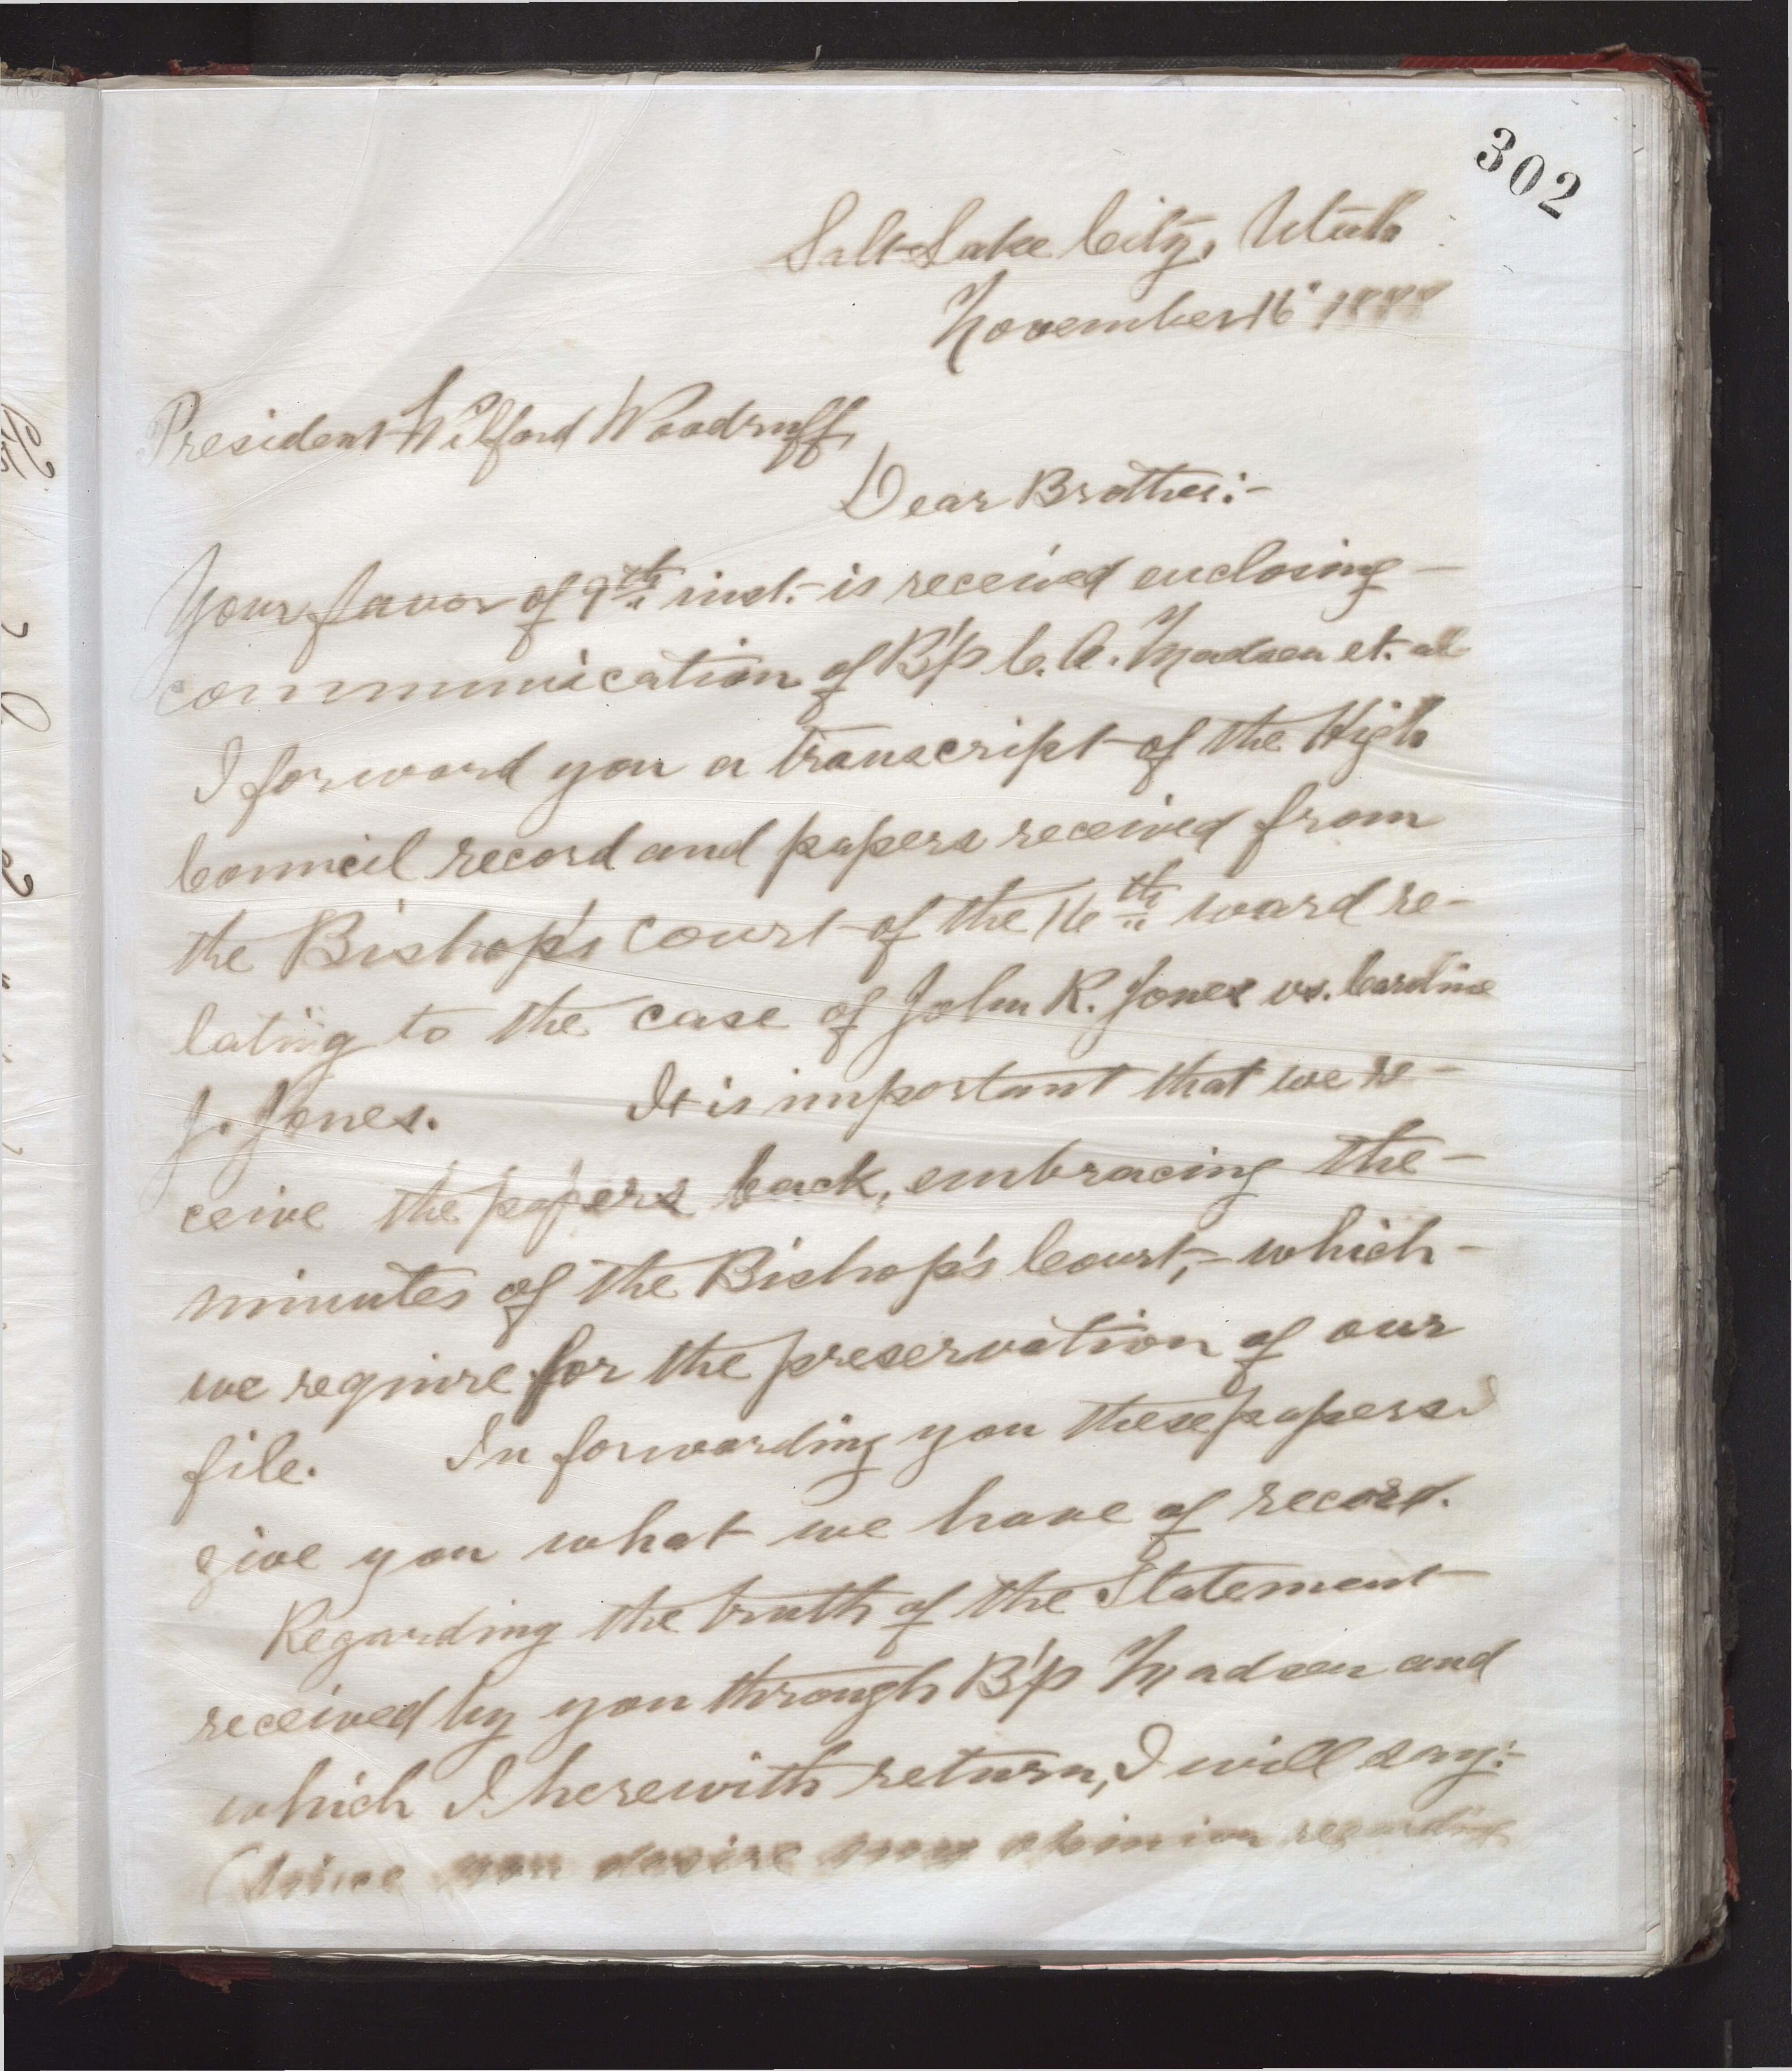 302
Salt Lake City, Utah
November 16" 1888
President Wilford Woodruff,
Dear Brother:-
Your favor of 9th inst.- is received enclosing -
communication of B'p C. A. Madsen et. al
I forward you a transcript of the High
Council record and papers received from
the Bishop's court of the 16th ward re-
lating to the case of John R. Jones vs. Caroline
J. Jones. It is important that we re-
ceive the papers back, embracing the -
minutes of the Bishop's Court,- which -
we require for the preservation of our
file. In forwarding you these papers I
give you what we have of record.
Regarding the truth of the Statement
received by you through B'p Madsen and
which I herewith return, I will say:-
(since you desire my opinion regarding